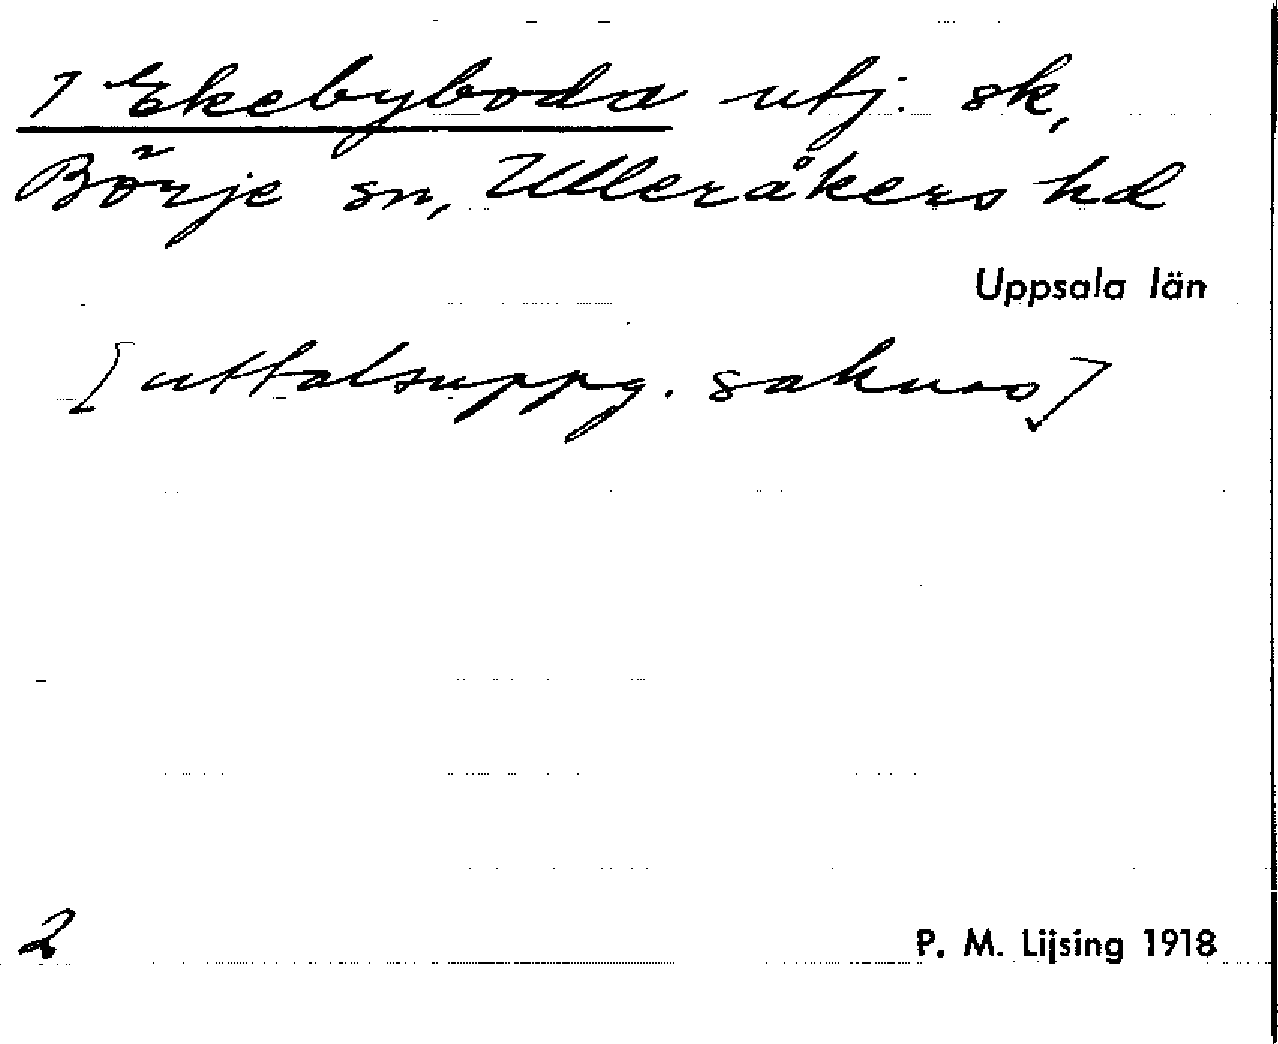 1 Ekebyboda utj. sk,
Börje sn, Ulleråkers hd
Uppsala län
[uttalsuppg. saknas]
2
P. M. Lijsing 1918